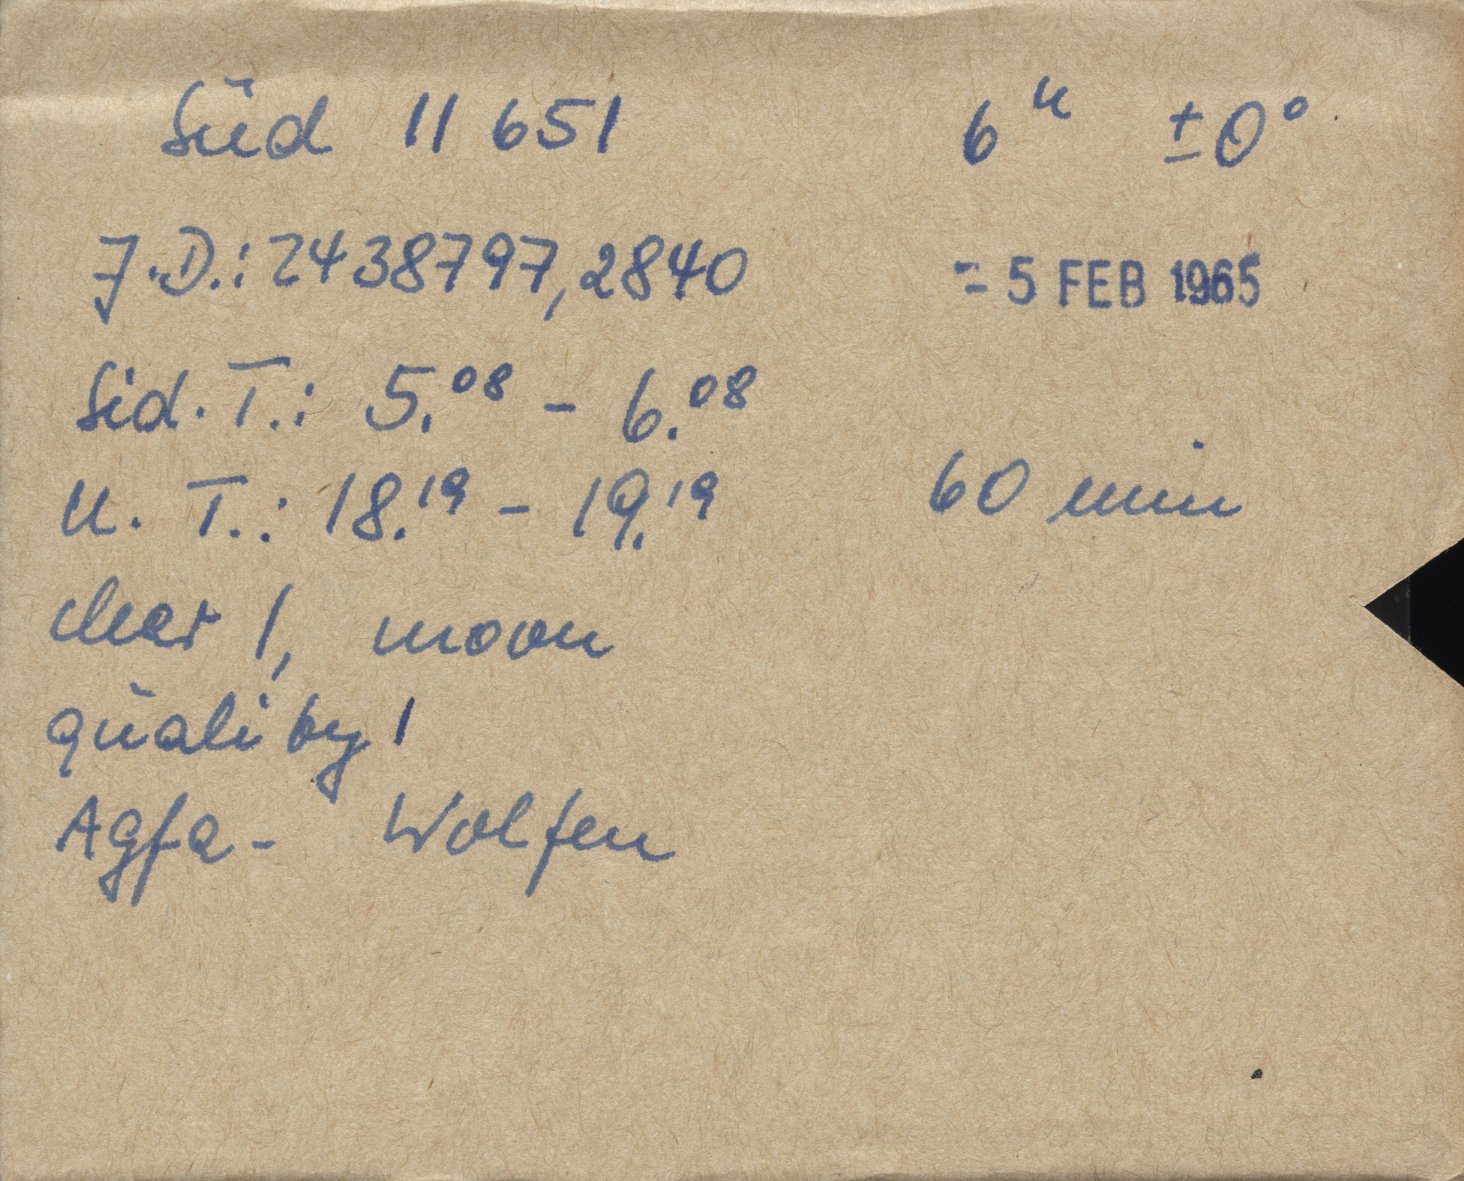 Süd 11 651 6ᵘ ±0°
J.D.: 2438797,2840 = 5 FEB 1965
Sid. T.: 5.⁰⁸ - 6.⁰⁸
U. T.: 18.¹⁹ - 19.¹⁹ 60 min
clear 1, moon
quality 1
Agfa - Wolfen